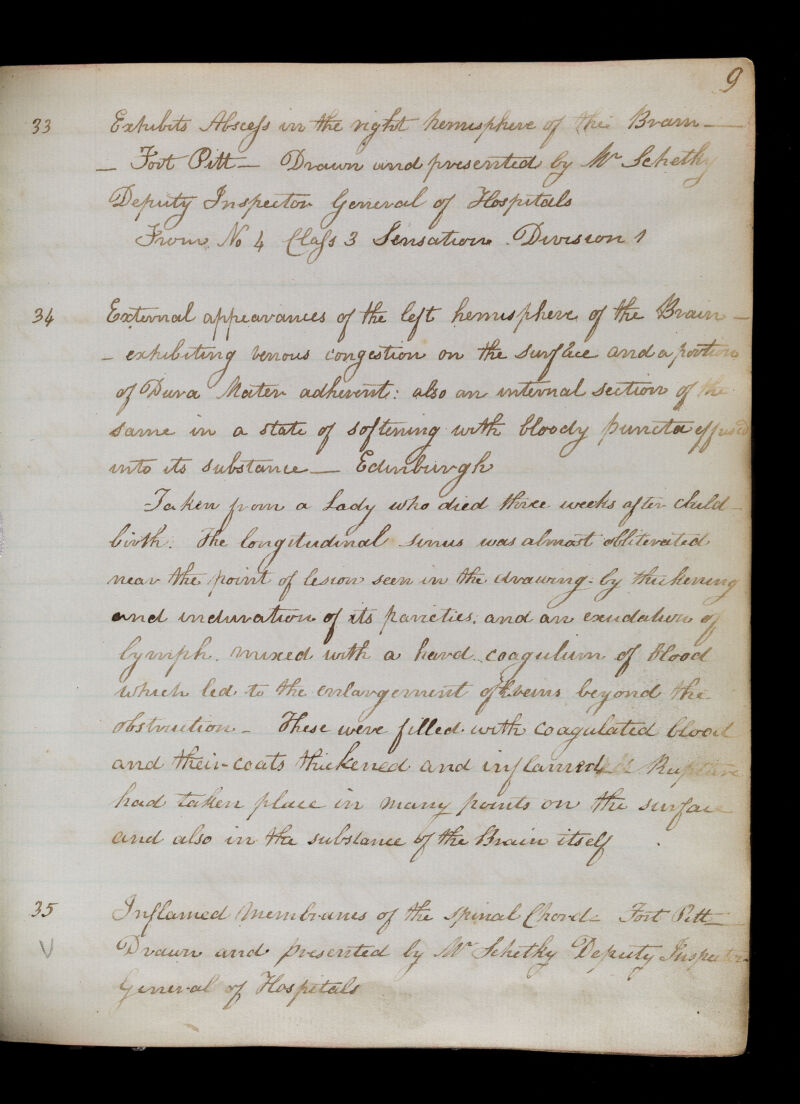 9
33 Exhibits Abscess in the right hemisphere of the Brain —
— Fort Pitt — Drawn and presented by Mr Schetky
Deputy Inspector General of Hospitals
From No 4 Class 3 Sensation Division 1
34 External appearances of the left hemisphere of the Brain —
— exhibiting venous congestion on the surface and a portion
of Dura Mater adherent: also an internal section of the
same in a state of softening with bloody puncta effused
into its substance — Edinburgh
Taken from a Lady who died three weeks after child-
birth. The longitudinal sinus was almost obliterated
near the point of lesion seen in the drawing by thickening
and induration of its parieties, and an exudation of
lymph mixed with a hard coagulum of blood
which led to the enlargement of veins beyond the
obstruction — These were filled with coagulated blood
and their coats thickened and inflamed Rupture
had taken place in many points on the surface
and also in the substance of the Brain itself
35 Inflamed Membranes of the spinal Chord — Fort Pitt —
V Drawn and presented by Mr Schetky Deputy Inspector
General of Hospitals